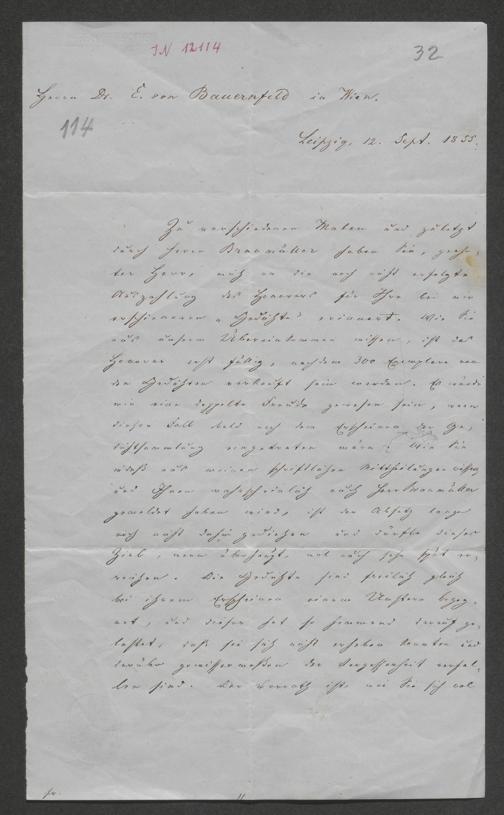 IN 12114
32
Herrn Dr. E. von Bauernfeld in Wien.
114
Leipzig, 12. Sept. 1855.
Zu verschiedenen Malen und zuletzt
durch Herrn Braumüller haben Sie, geehr-
ter Herr, mich an die noch nicht erfolgte
Auszahlung des Honorars für Ihre bei mir
erschienenen „Gedichte" erinnert. Wie Sie
aus unserm Uebereinkommen wissen, ist das
Honorar erst fällig, nachdem 300 Exemplare von
den Gedichten verkauft sein werden. Es würde
mir eine doppelte Freude gewesen sein, wenn
dieser Fall bald nach dem Erscheinen der Ge-
dichtsammlung eingetreten wäre. Wie Sie
aus meinen schriftlichen Mittheilungen wissen
und Ihnen wahrscheinlich auch Herr Braumüller
gemeldet haben wird, ist der Absatz lange
noch nicht dahin gediehen und dürfte dieses
Ziel, wenn überhaupt, wol auch sehr spät er-
reichen. Die Gedichte sind freilich gleich
bei ihrem Erscheinen einem Unstern begeg-
net, und dieser hat so hemmend darauf ge-
lastet, daß sie sich nicht erheben konnten und
gewissermaßen der Vergessenheit verfal-
len sind. Der Vorrath ist, wie Sie sich wol